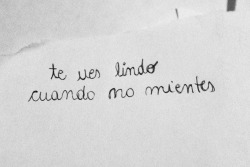 te ves lindo
cuando no mientes